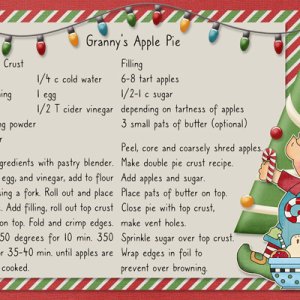 Granny's Apple Pie
Crust
1/4 c cold water
1 egg
1/2 T cider vinegar
gredients with pastry blender.
egg, and vinegar, add to flour
sing a fork. Roll out and place
. Add filling, roll out top crust
on top. Fold and crimp edges.
50 degrees for 10 min. 350
or 35-40 min. until apples are
cooked.
Filling
6-8 tart apples
1/2-1 c sugar
depending on tartness of apples
3 small pats of butter (optional)
Peel, core and coarsely shred apples.
Make double pie crust recipe.
Add apples and sugar.
Place pats of butter on top.
Close pie with top crust,
make vent holes.
Sprinkle sugar over top crust.
Wrap edges in foil to
prevent over browning.